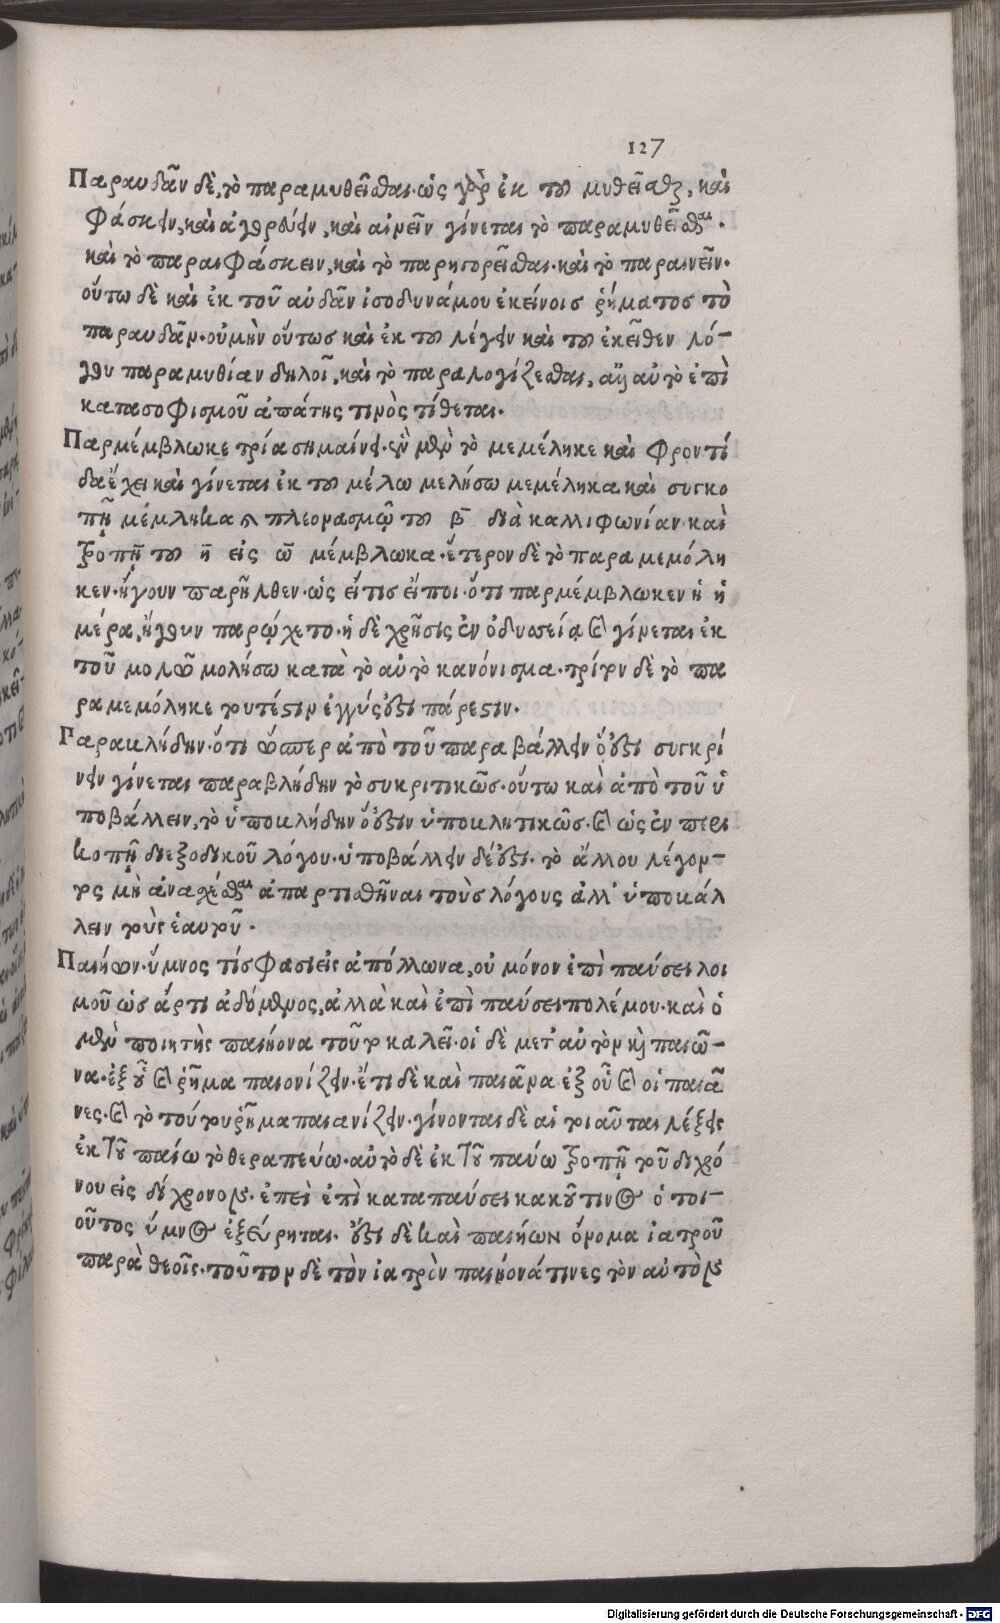 127
Παραυδᾶν δὲ, τὸ παραμυθεῖσθαι. ὡς γὰρ ἐκ του μυθεῖσθαι, καὶ
φάσκειν, καὶ ἀγορεύειν, καὶ αἰνεῖν γίνεται τὸ παραμυθεῖσθαι.
καὶ τὸ παραιφάσκειν, καὶ τὸ παρηγορεῖσθαι. καὶ τὸ παραινεῖν.
οὕτω δὲ καὶ ἐκ τοῦ αὐδᾶν ἰσοδυνάμου ἐκείνοις ῥήματος τὸ
παραυδᾶν. οὐ μὴν οὕτως καὶ ἐκ του λέγειν καὶ του ἐκεῖθεν λό-
γου παραμυθίαν δηλοῖ, καὶ τὸ παραλογίζεσθαι, αὐτὸ ἐπὶ
κατασοφισμοῦ ἀπάτης τινὸς τίθεται.
Παρμέμβλωκε τρία σημαίνει. ἓν μὲν τὸ μεμέληκε καὶ φροντί
δα ἔχει καὶ γίνεται ἐκ του μέλω μελήσω μεμέληκα καὶ συγκο
πῇ μέμληκα πλεονασμῷ του β διὰ καλλιφωνίαν καὶ
τροπῇ του η εἰς ω μέμβλωκα. ἕτερον δὲ τὸ παραμεμόλη
κεν. ἤγουν παρῆλθεν. ὡς εἴ τις εἴποι. ὅτι παρμέμβλωκεν ἡ ἡ
μέρα, ἤγουν παρῴχετο. ἡ δὲ χρῆσις ἐν ὀδυσσείᾳ καὶ γίνεται ἐκ
τοῦ μολῶ μολήσω κατὰ τὸ αὐτὸ κανόνισμα. τρίτον δὲ τὸ πα
ραμεμόληκε τουτέστιν ἐγγύς ἐστι πάρεστιν.
Παρακλήδην. ὅτι ὥσπερ ἀπὸ τοῦ παραβάλλειν ὅ ἐστι συγκρί
νειν γίνεται παραβλήδην τὸ συκριτικῶς. οὕτω καὶ ἀπὸ τοῦ ὑ
ποβάλλειν, τὸ ὑποκλήδην ὅ ἐστιν ὑποκλητικῶς. καὶ ὡς ἐν περι
κοπῇ διεξοδικοῦ λόγου. ὑποβάλλειν δέ ἐστι. τὸ ἄλλου λέγον-
τος μὴ ἀνασχέσθαι ἀπαρτισθῆναι τοὺς λόγους ἀλλ' ὑποκάλ
λειν τοὺς ἑαυτοῦ.
Παιήων. ὕμνος τίς φασι εἰς ἀπόλλωνα, οὐ μόνον ἐπὶ παύσει λοι
μοῦ ὡς ἄρτι ἀδόμενος, ἀλλὰ καὶ ἐπὶ παύσει πολέμου. καὶ ὁ
μὲν ποιητὴς παιήονα τοῦτο καλεῖ. οἱ δὲ μετ' αὐτὸν καὶ παιῶ-
να. ἐξ οὗ καὶ ῥῆμα παιονίζειν. ἔτι δὲ καὶ παιᾶνα ἐξ οὗ καὶ οἱ παιᾶ
νες. καὶ τὸ τούτου ῥῆμα παιανίζειν. γίνονται δὲ αἱ τοιαῦται λέξεις
ἐκ τοῦ παίω τὸ θεραπεύω. αὐτὸ δὲ ἐκ τοῦ παύω τροπῇ τοῦ διχρό
νου εἰς δίχρονον. ἐπεὶ ἐπὶ καταπαύσει κακοῦ τινος ὁ τοι-
οῦτος ὕμνος ἐξεύρηται. ἔστι δὲ καὶ παιήων ὄνομα ἰατροῦ
παρὰ θεοῖς. τοῦτον δὲ τὸν ἰατρὸν παιήονά τινες τὸν αὐτὸν
Digitalisierung gefördert durch die Deutsche Forschungsgemeinschaft - DFG